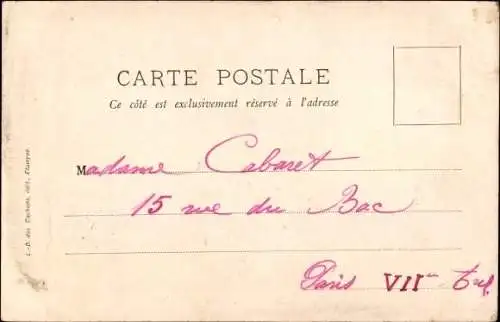 CARTE POSTALE
Ce côté est exclusivement réservé à l'adresse
Madame Cabaret
15 rue du Bac
Paris VII
L.-D. des Tachons, édit., Étampes